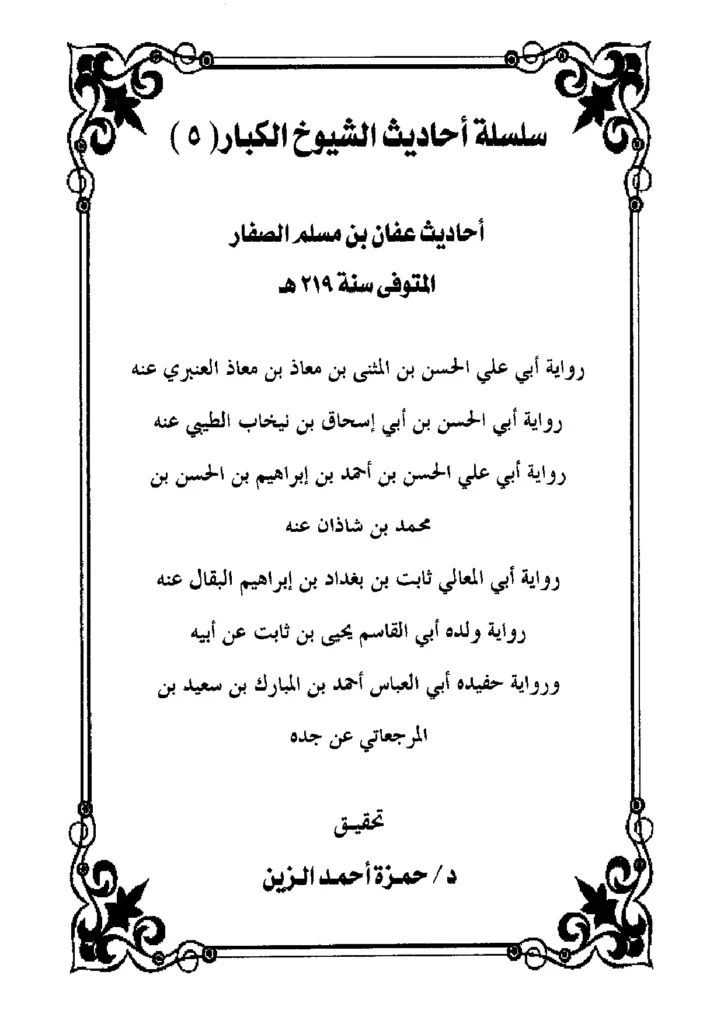 سلسلة أحاديث الشيوخ الكبار ( ٥ )
أحاديث عفان بن مسلم الصفار
المتوفى سنة ٢١٩ هـ
رواية أبي علي الحسن بن المثنى بن معاذ بن معاذ العنبري عنه
رواية أبي الحسن بن أبي إسحاق بن نيخاب الطيبي عنه
رواية أبي علي الحسن بن أحمد بن إبراهيم بن الحسن بن
محمد بن شاذان عنه
رواية أبي المعالي ثابت بن بغداد بن إبراهيم البقال عنه
رواية ولده أبي القاسم يحيى بن ثابت عن أبيه
ورواية حفيده أبي العباس أحمد بن المبارك بن سعيد بن
المرجعاتي عن جده
تحقيق
د/ حمزة أحمد الزين